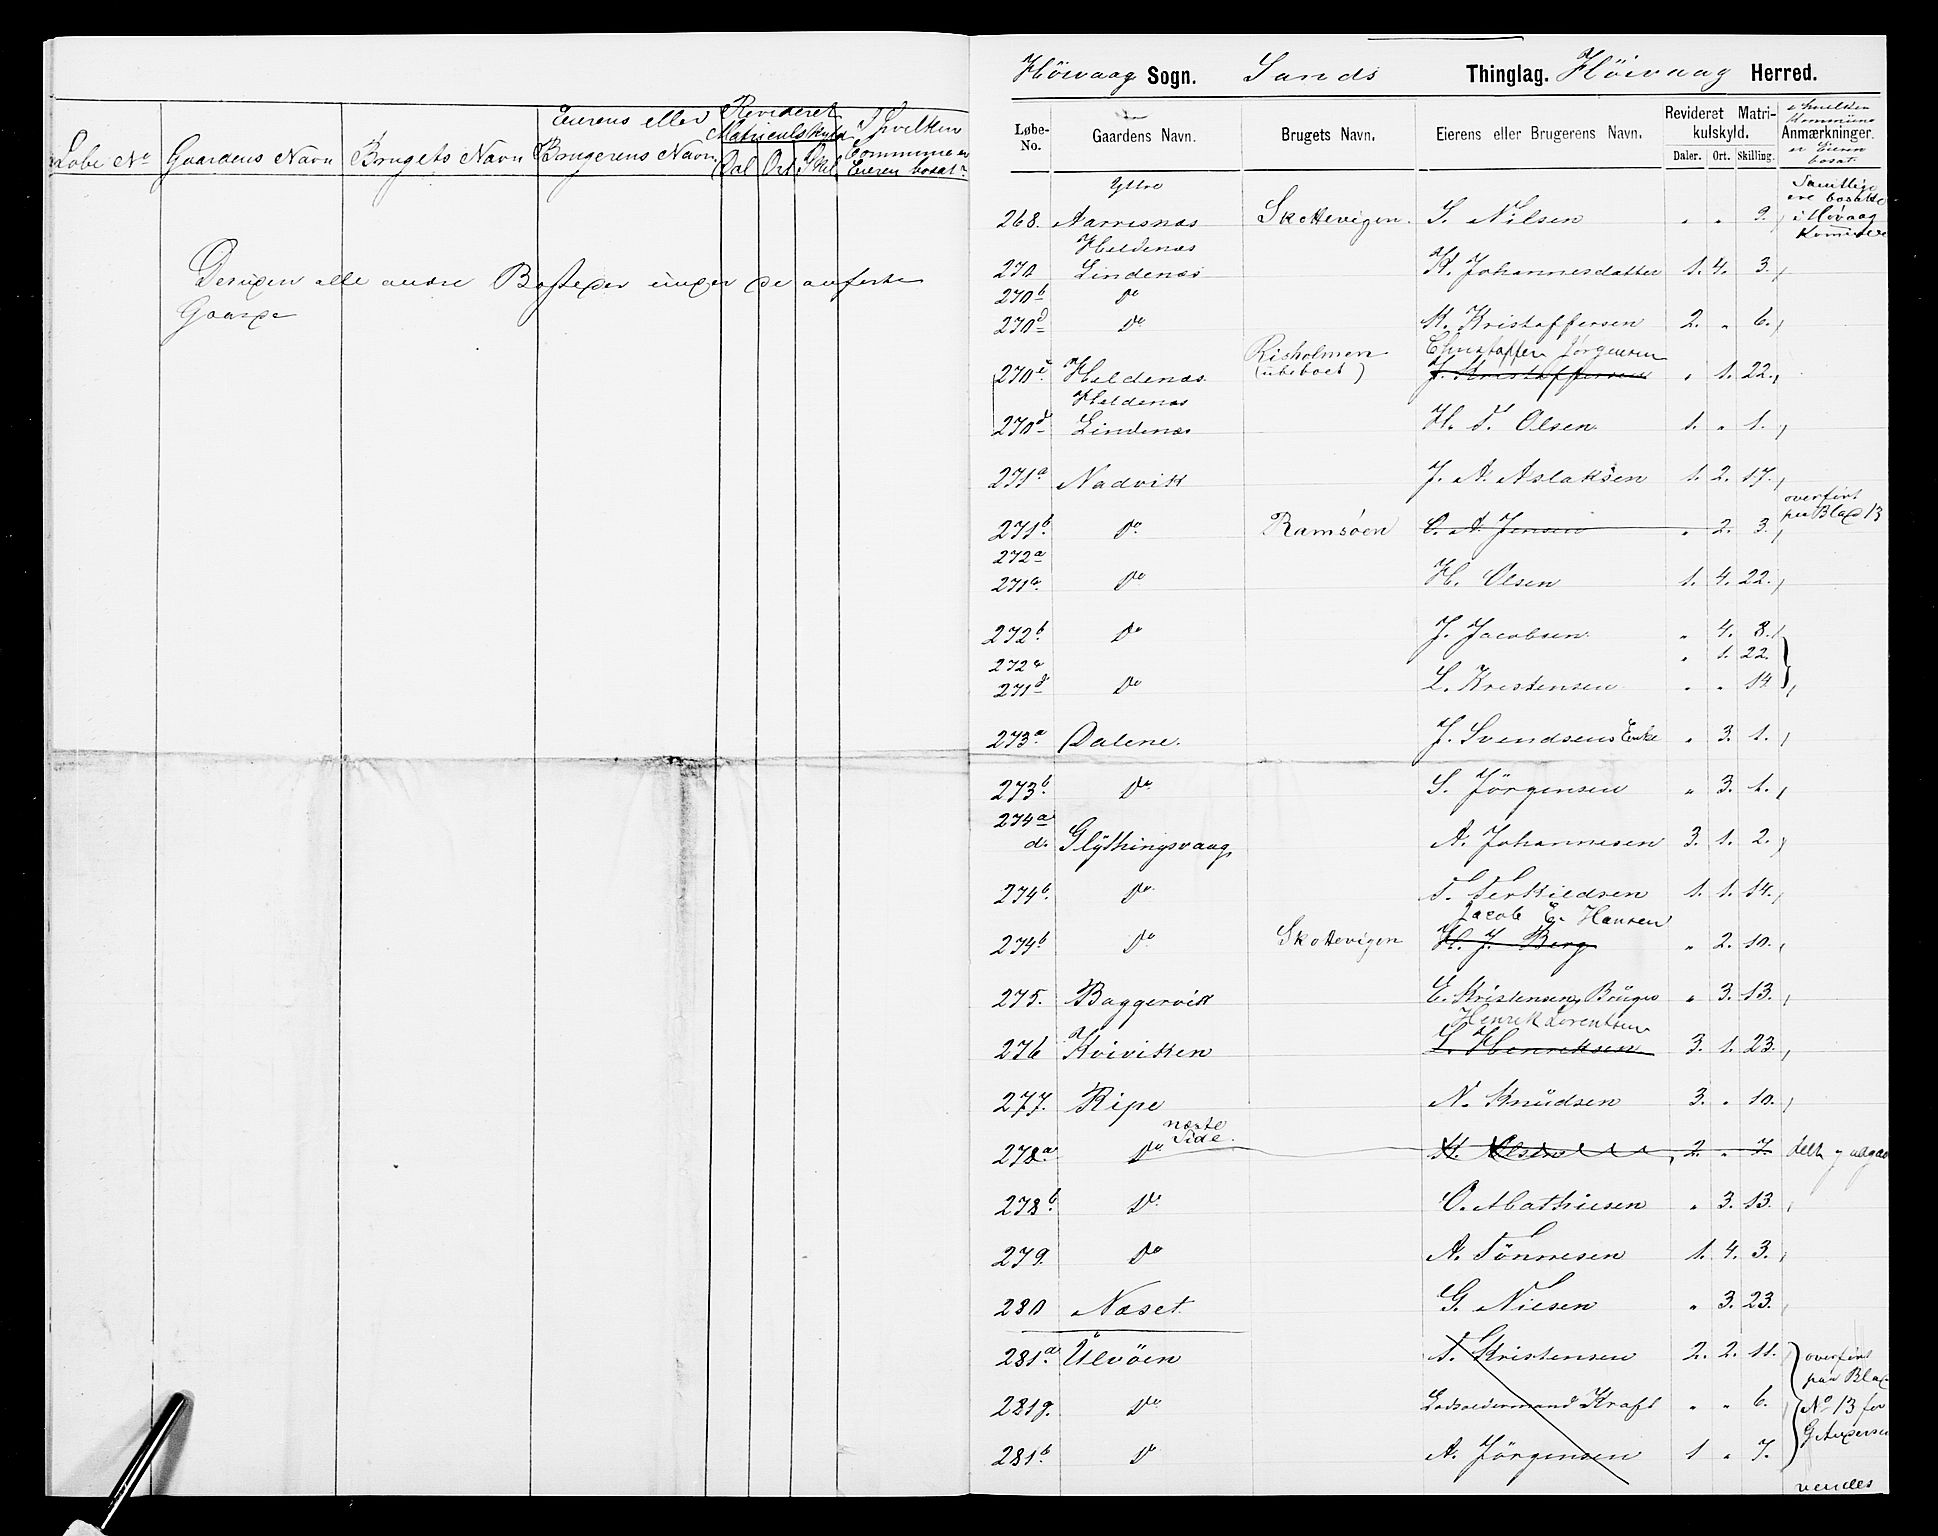 Løbe No Gaardens Navn Brugets Navn Eierens eller Brugerens Navn Revideret Matriculskyld Dal Ort Skil I hvilken Commune er Eieren bosat
Desuden alle andre Bosteder under de anførte
Gaarde
Höivaag Sogn. Sands Thinglag. Höivaag Herred.
Løbe-No. Gaardens Navn. Brugets Navn. Eierens eller Brugerens Navn. Revideret Matrikulskyld. Daler. Ort. Skilling. Anmærkninger. i hvilken Kommüne er Eieren bosat.
Yttre
268. Aarresnæs Skottevigen. S. Nilsen " " 9. Samtlige ere bosatte i Høvaag Kommune
Heldenæs
270 Lindenæs K. Johannesdatter 1. 4. 3.
270b Do
270d Do K. Kristoffersen 2. " 6.
Risholmen Christoffer Jørgensen
270e. Heldenæs (ubeboet) J. Kristoffersen " 1. 22.
Heldenæs
270d Lindenæs H. T. Olsen 1. " 1.
271a Nadvik J. A. Aslaksen 1. 2. 17.
overført paa Blad 13
271b. Do Ramsöen O. A. Jensen " 2. 3.
272a
271a. Do H. Olsen 1. 4. 22.
272b Do J. Jacobsen " 4. 8.
272a " 1. 22.
271d Do L. Kristensen " " 14
273a. Dalene. J. Svendsens Enke " 3. 1.
273b. Do S. Jörgensen " 3. 1.
274a
d. Glÿthingsvaag A. Johannesen 3. 1. 2.
274b. Do T. Terkildsen 1. 1. 14.
Jacob E. Hansen
274b Do Skottevigen H. J. Berg " 2. 10.
275. Baggervik E. Kristensen, Brüger " 3. 13.
Henrik Lorentsen
276 Kvivikken L. Henriksen 3. 1. 23.
277. Ripe N. Knüdsen 3. " 10.
næste Side.
278a Do K. Olsen 2. " 7. delt og
278b. Do O. Mathiesen " 3. 13.
279. Do A. Tönnesen 1. 4. 3.
280 Næset G. Nilsen " 3. 23.
281a. Ülvöen T. Kristensen 2. 2. 11. overført paa Blad
281g. Do Lodsoldermand Kraft " " 6. No 13 for
281b. Do A. Jörgensen 1 " 7. G Andersen
vendes